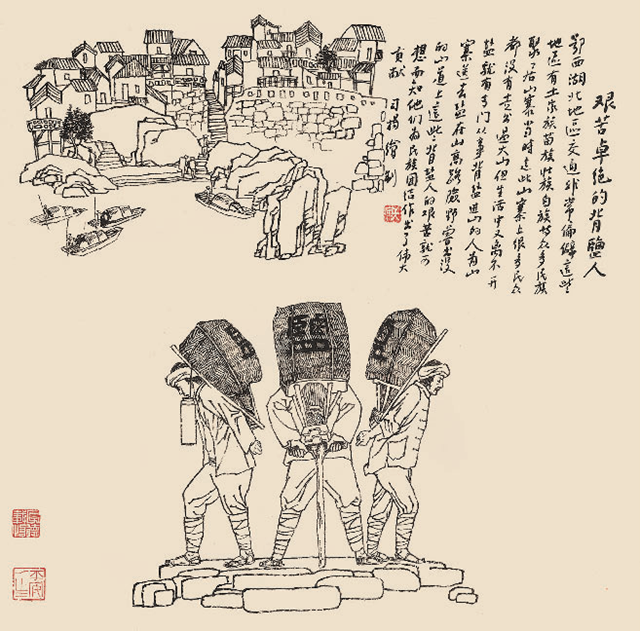 艰苦卓绝的背鹽人
鄂西湖北地区交通非常偏僻这些
地区有土家族苗族壮族白族等众多民族
聚了居山寨当时这些山寨上很多民众
都没有走出过大山但生活中又离不开
盐就有专门从事背盐进山的人为山
寨送去盐在山高路野出没
的山道上这些背盐人的艰苦就可
想而知他们为民族团结作出了伟大
贡献
鹽